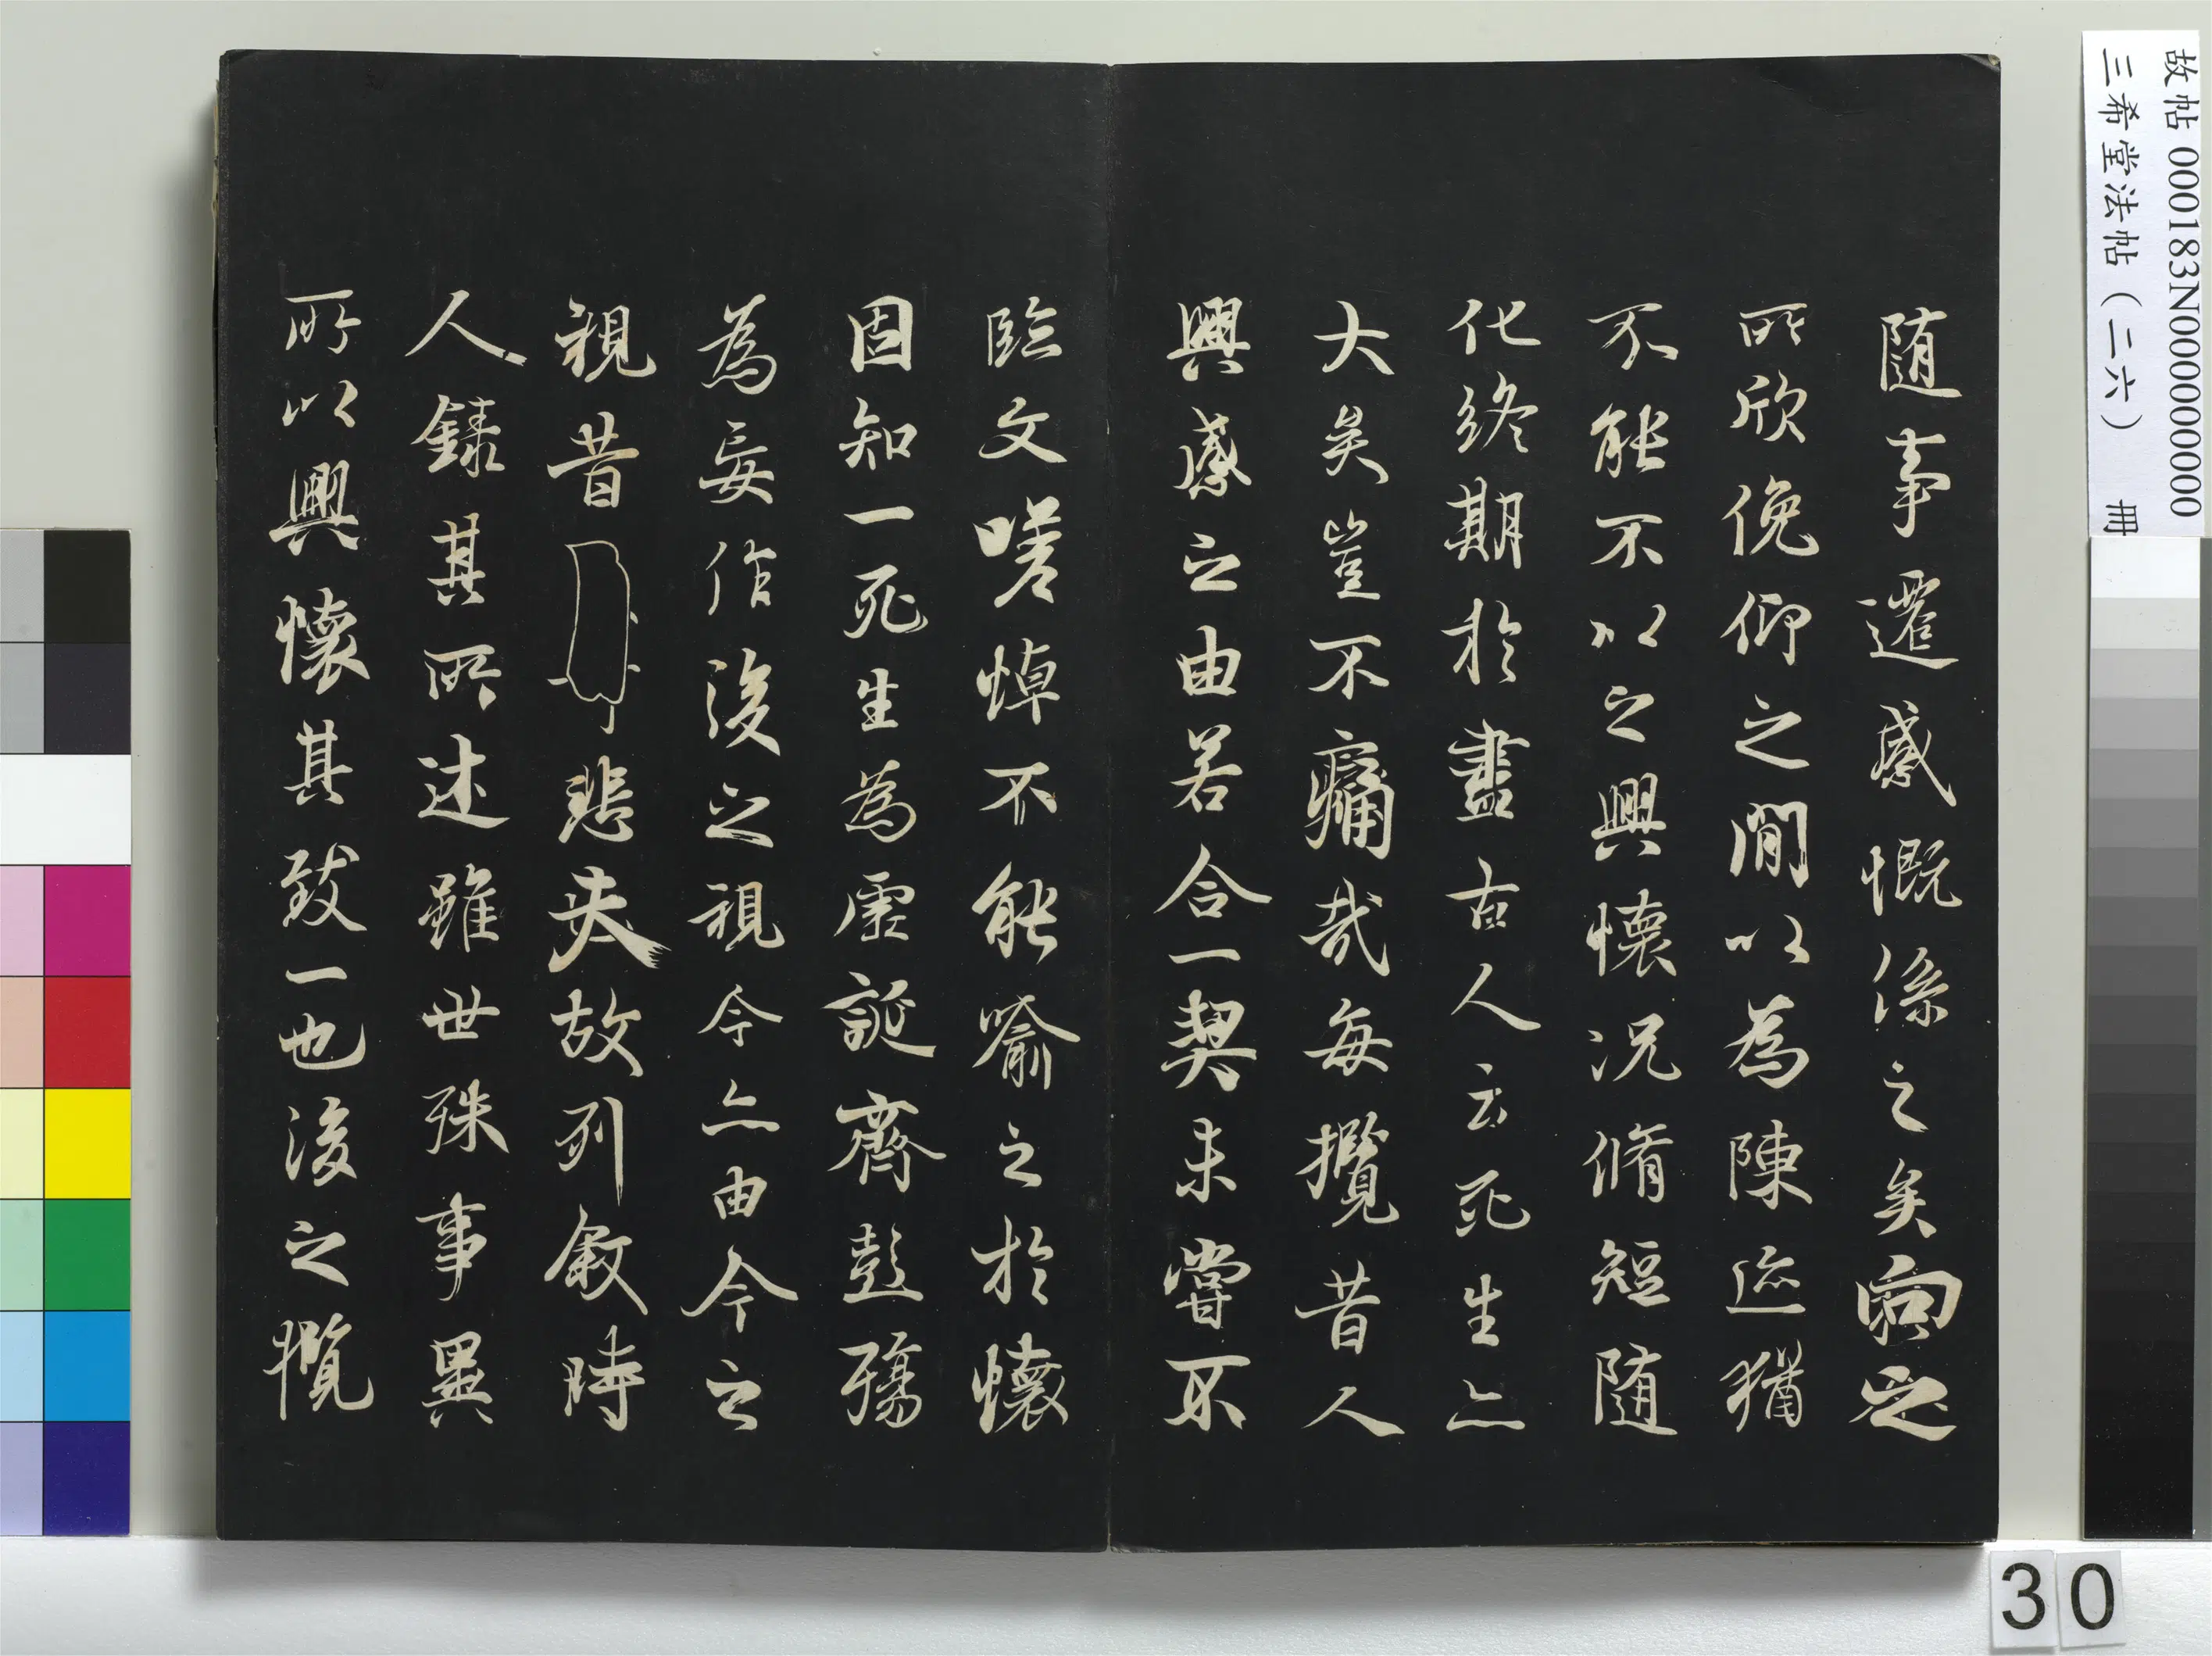 随事遷感慨係之矣向之
所欣俛仰之間以為陳迹猶
不能不以之興懷況脩短随
化終期於盡古人云死生亦
大矣豈不痛哉每攬昔人
興感之由若合一契未嘗不
臨文嗟悼不能喻之於懷
固知一死生為虛誕齊彭殤
為妄作後之視今亦由今之
視昔悲夫故列敘時
人錄其所述雖世殊事異
所以興懷其致一也後之攬
故帖 000183N000000000
三希堂法帖（二六） 冊
30